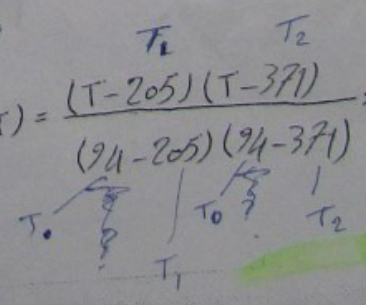 T₁ T₂
T) = (T-205)(T-371)
(94-205)(94-371)
T₀ ? T₁ T₀ ? T₂